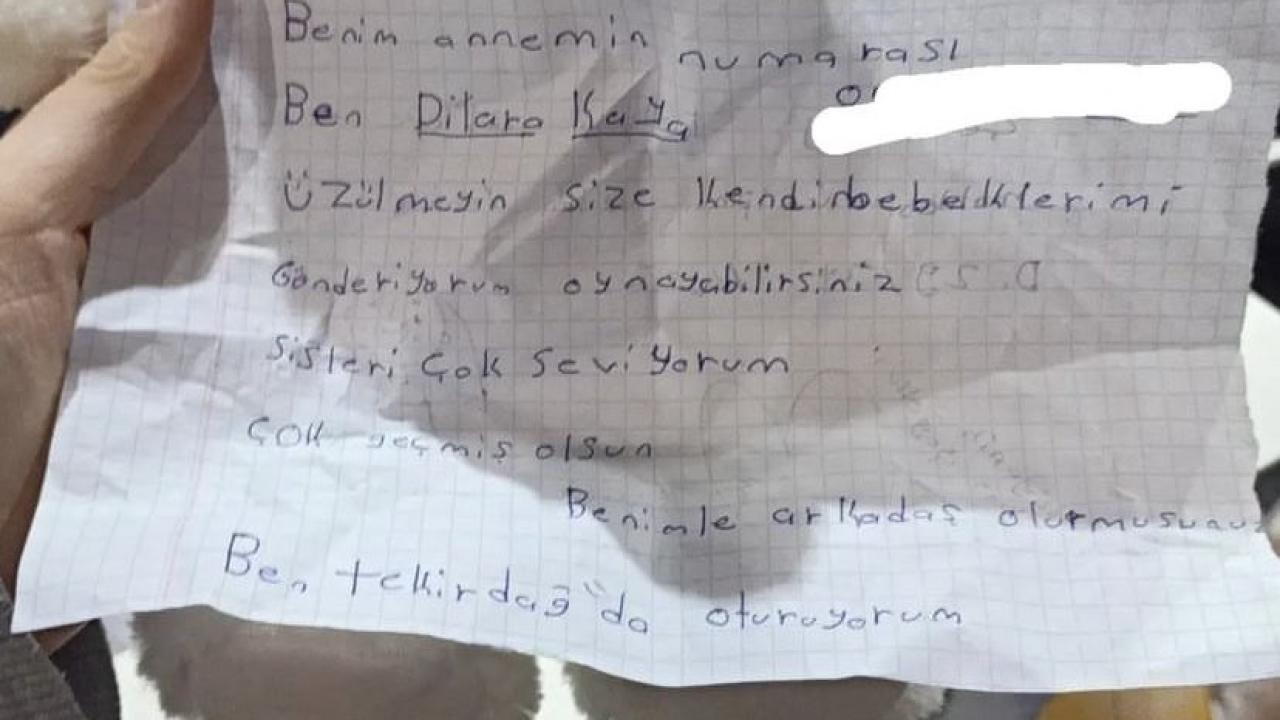 Benim annemin numarası
Ben Dilara Kaya
Üzülmeyin size kendi bebeklerimi
Gönderiyorum oynayabilirsiniz
Sisleri çok seviyorum
Çok geçmiş olsun
Benimle arkadaş olurmusunuz
Ben tekirdağ'da oturuyorum